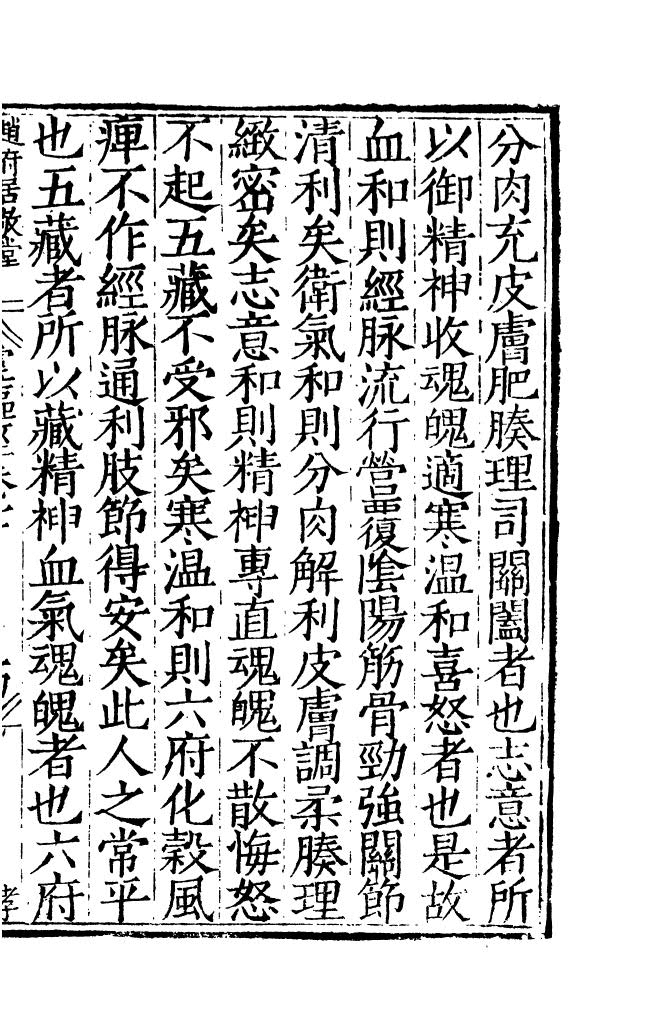 分肉充皮膚肥腠理司關闔者也志意者所
以御精神收魂魄適寒温和喜怒者也是故
血和則經脉流行營復陰陽筋骨勁強關節
清利矣衛氣和則分肉解利皮膚調柔腠理
緻密矣志意和則精神專直魂魄不散悔怒
不起五藏不受邪矣寒温和則六府化穀風
痺不作經脉通利肢節得安矣此人之常平
也五藏者所以藏精神血氣魂魄者也六府
趙府居敬堂